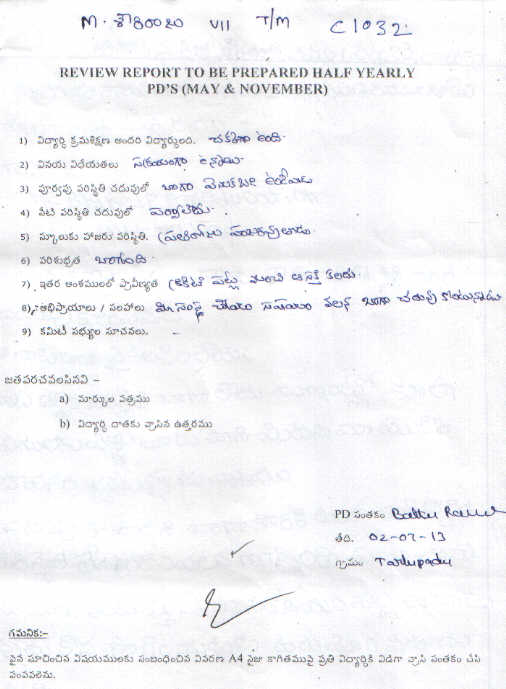 M. శౌరిరాజు VII T/M C1032
REVIEW REPORT TO BE PREPARED HALF YEARLY
PD'S (MAY & NOVEMBER)
1) విద్యార్థి క్రమశిక్షణ అందరి విద్యార్థులది. చక్కగా ఉంది.
2) వినయ విధేయతలు సక్రమంగా ఉన్నాయి.
3) పూర్వపు పరిస్థితి చదువులో బాగా వెనుకబడి ఉండేవాడు
4) నేటి పరిస్థితి చదువులో పర్వాలేదు.
5) స్కూలుకు హాజరు పరిస్థితి. ప్రతిరోజు
6) పరిశుభ్రత బాగుంది.
7) ఇతర అంశములలో ప్రావీణ్యత క్రికెట్ పట్ల మంచి ఆసక్తి కలదు.
8) అభిప్రాయాలు / సలహాలు మీ సంస్థ చేయు సహాయం వలన బాగా చదువు
9) కమిటీ సభ్యుల సూచనలు. -
జతపరచవలసినవి –
a) మార్కుల పత్రము
b) విద్యార్థి దాతకు వ్రాసిన ఉత్తరము
PD సంతకం
తేది. 02-07-13
గ్రామం Tarlupadu
గమనిక:-
పైన సూచించిన విషయములకు సంబంధించిన వివరణ A4 సైజు కాగితముపై ప్రతి విద్యార్థికి విడిగా వ్రాసి సంతకం చేసి
పంపవలెను.